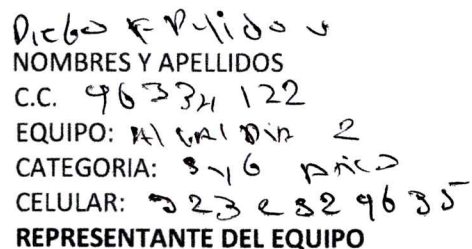 Diego F Pulido V
NOMBRES Y APELLIDOS
C.C. 96334122
EQUIPO: 2
CATEGORIA: 5 y 6
CELULAR: 323 2829635
REPRESENTANTE DEL EQUIPO